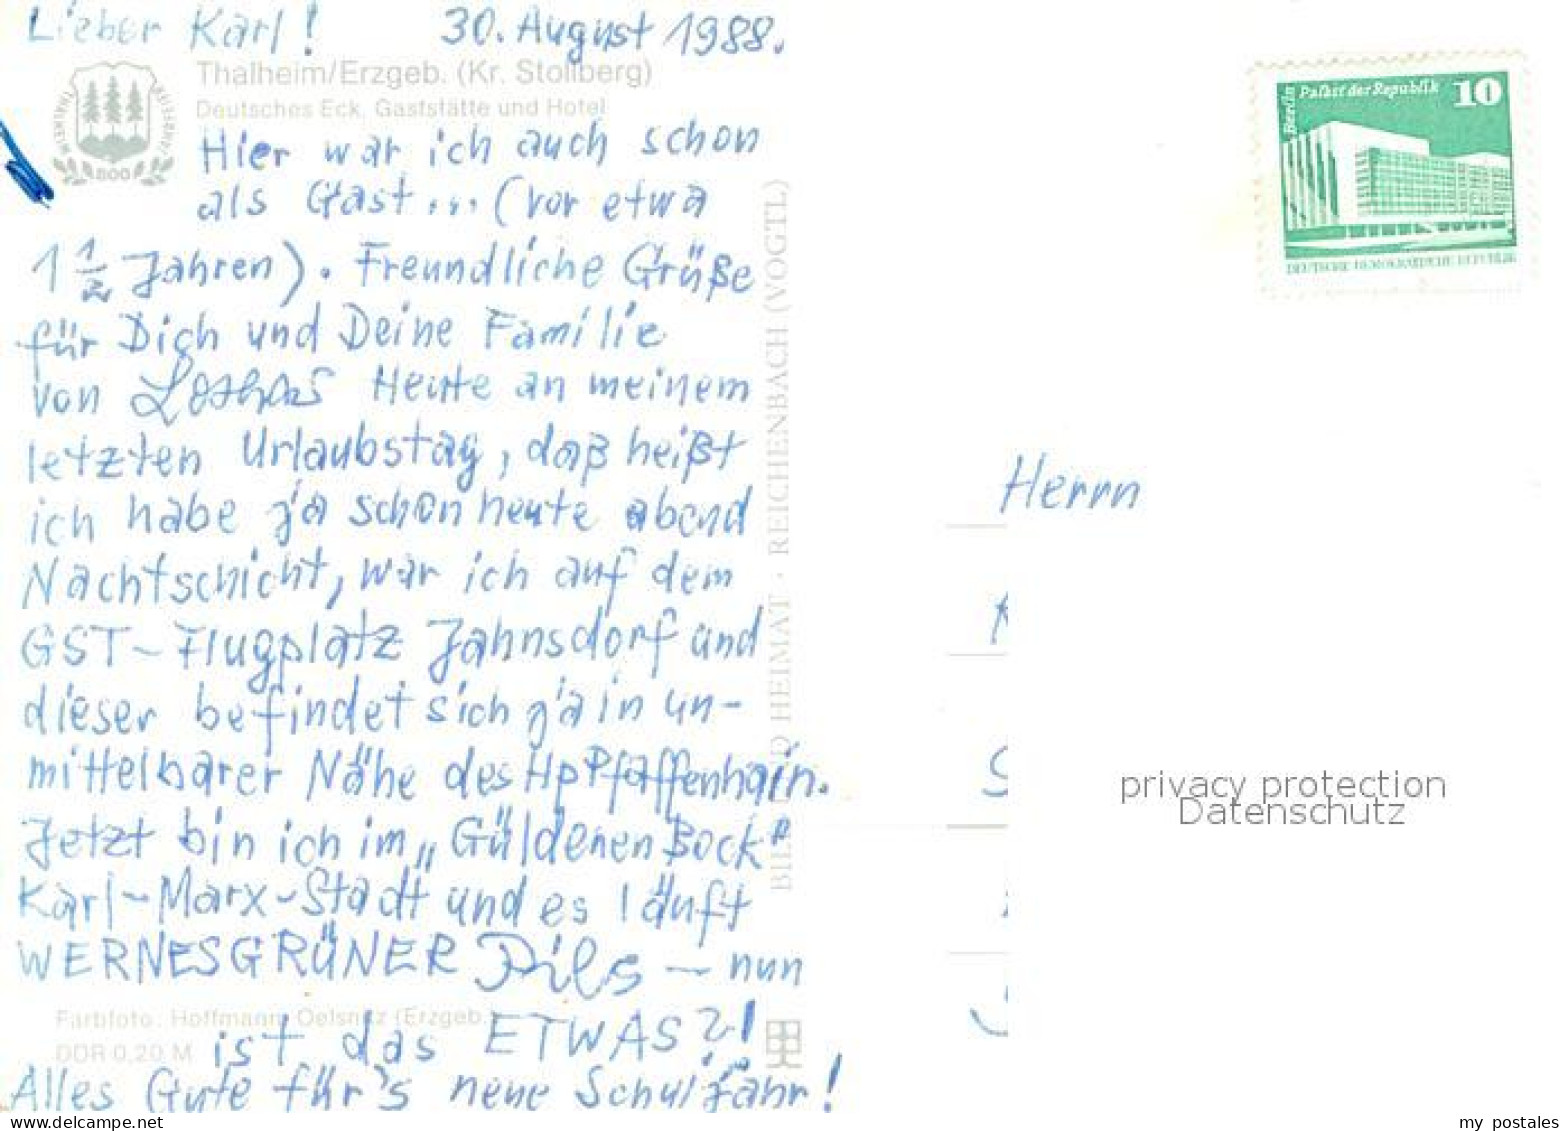 Lieber Karl! 30. August 1988.
Thalheim/Erzgeb. (Kr. Stollberg)
Deutsches Eck, Gaststätte und Hotel
800
Hier war ich auch schon
als Gast... (vor etwa
1 1/2 Jahren). Freundliche Grüße
für Dich und Deine Familie
von Heute an meinem
letzten Urlaubstag, daß heißt
ich habe ja schon heute abend
Nachtschicht, war ich auf dem
GST-Flugplatz Jahnsdorf und
dieser befindet sich ja in un-
mittelbarer Nähe des Hp Pfaffenhain.
Jetzt bin ich im „Güldenen Bock"
Karl-Marx-Stadt und es läuft
WERNESGRÜNER Pils - nun
ist das ETWAS?!
Alles Gute für's neue Schuljahr!
Farbfoto: Hoffmann, Oelsnitz (Erzgeb.)
DDR 0,20 M
HEIMAT · REICHENBACH (VOGTL)
Berlin Palast der Republik 10
DEUTSCHE DEMOKRATISCHE REPUBLIK
Herrn
privacy protection
Datenschutz
delcampe.net
my_postales